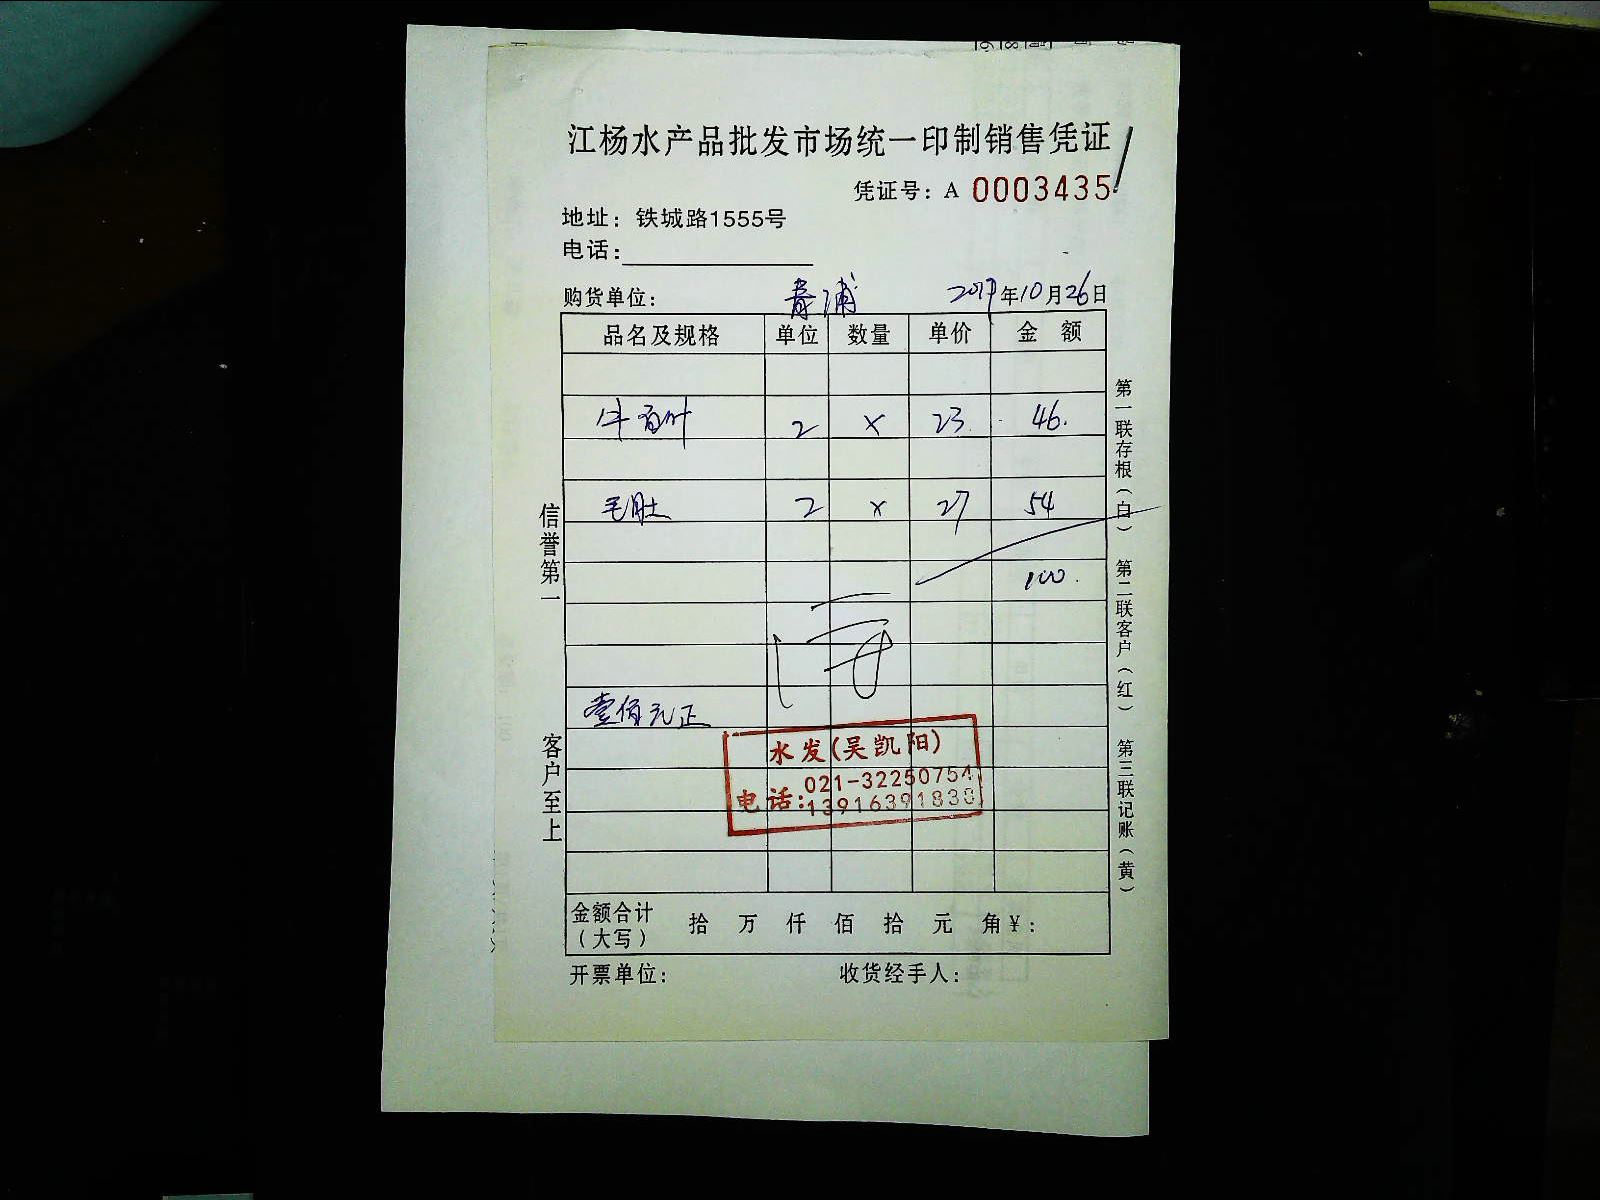 江杨水产品批发市场统一印制销售凭证
凭证号：A 0003435
地址：铁城路1555号
电话：
购货单位： 青浦 2017年10月26日
品名及规格 单位 数量 单价 金 额
牛百叶 2 × 23. 46.
毛肚 2 × 27 54
100.
壹佰元正
水发(吴凯阳)
电话：021-32250754
13916391830
金额合计（大写） 拾 万 仟 佰 拾 元 角￥：
开票单位： 收货经手人：
信誉第一 客户至上
第一联存根（白） 第二联客户（红） 第三联记账（黄）